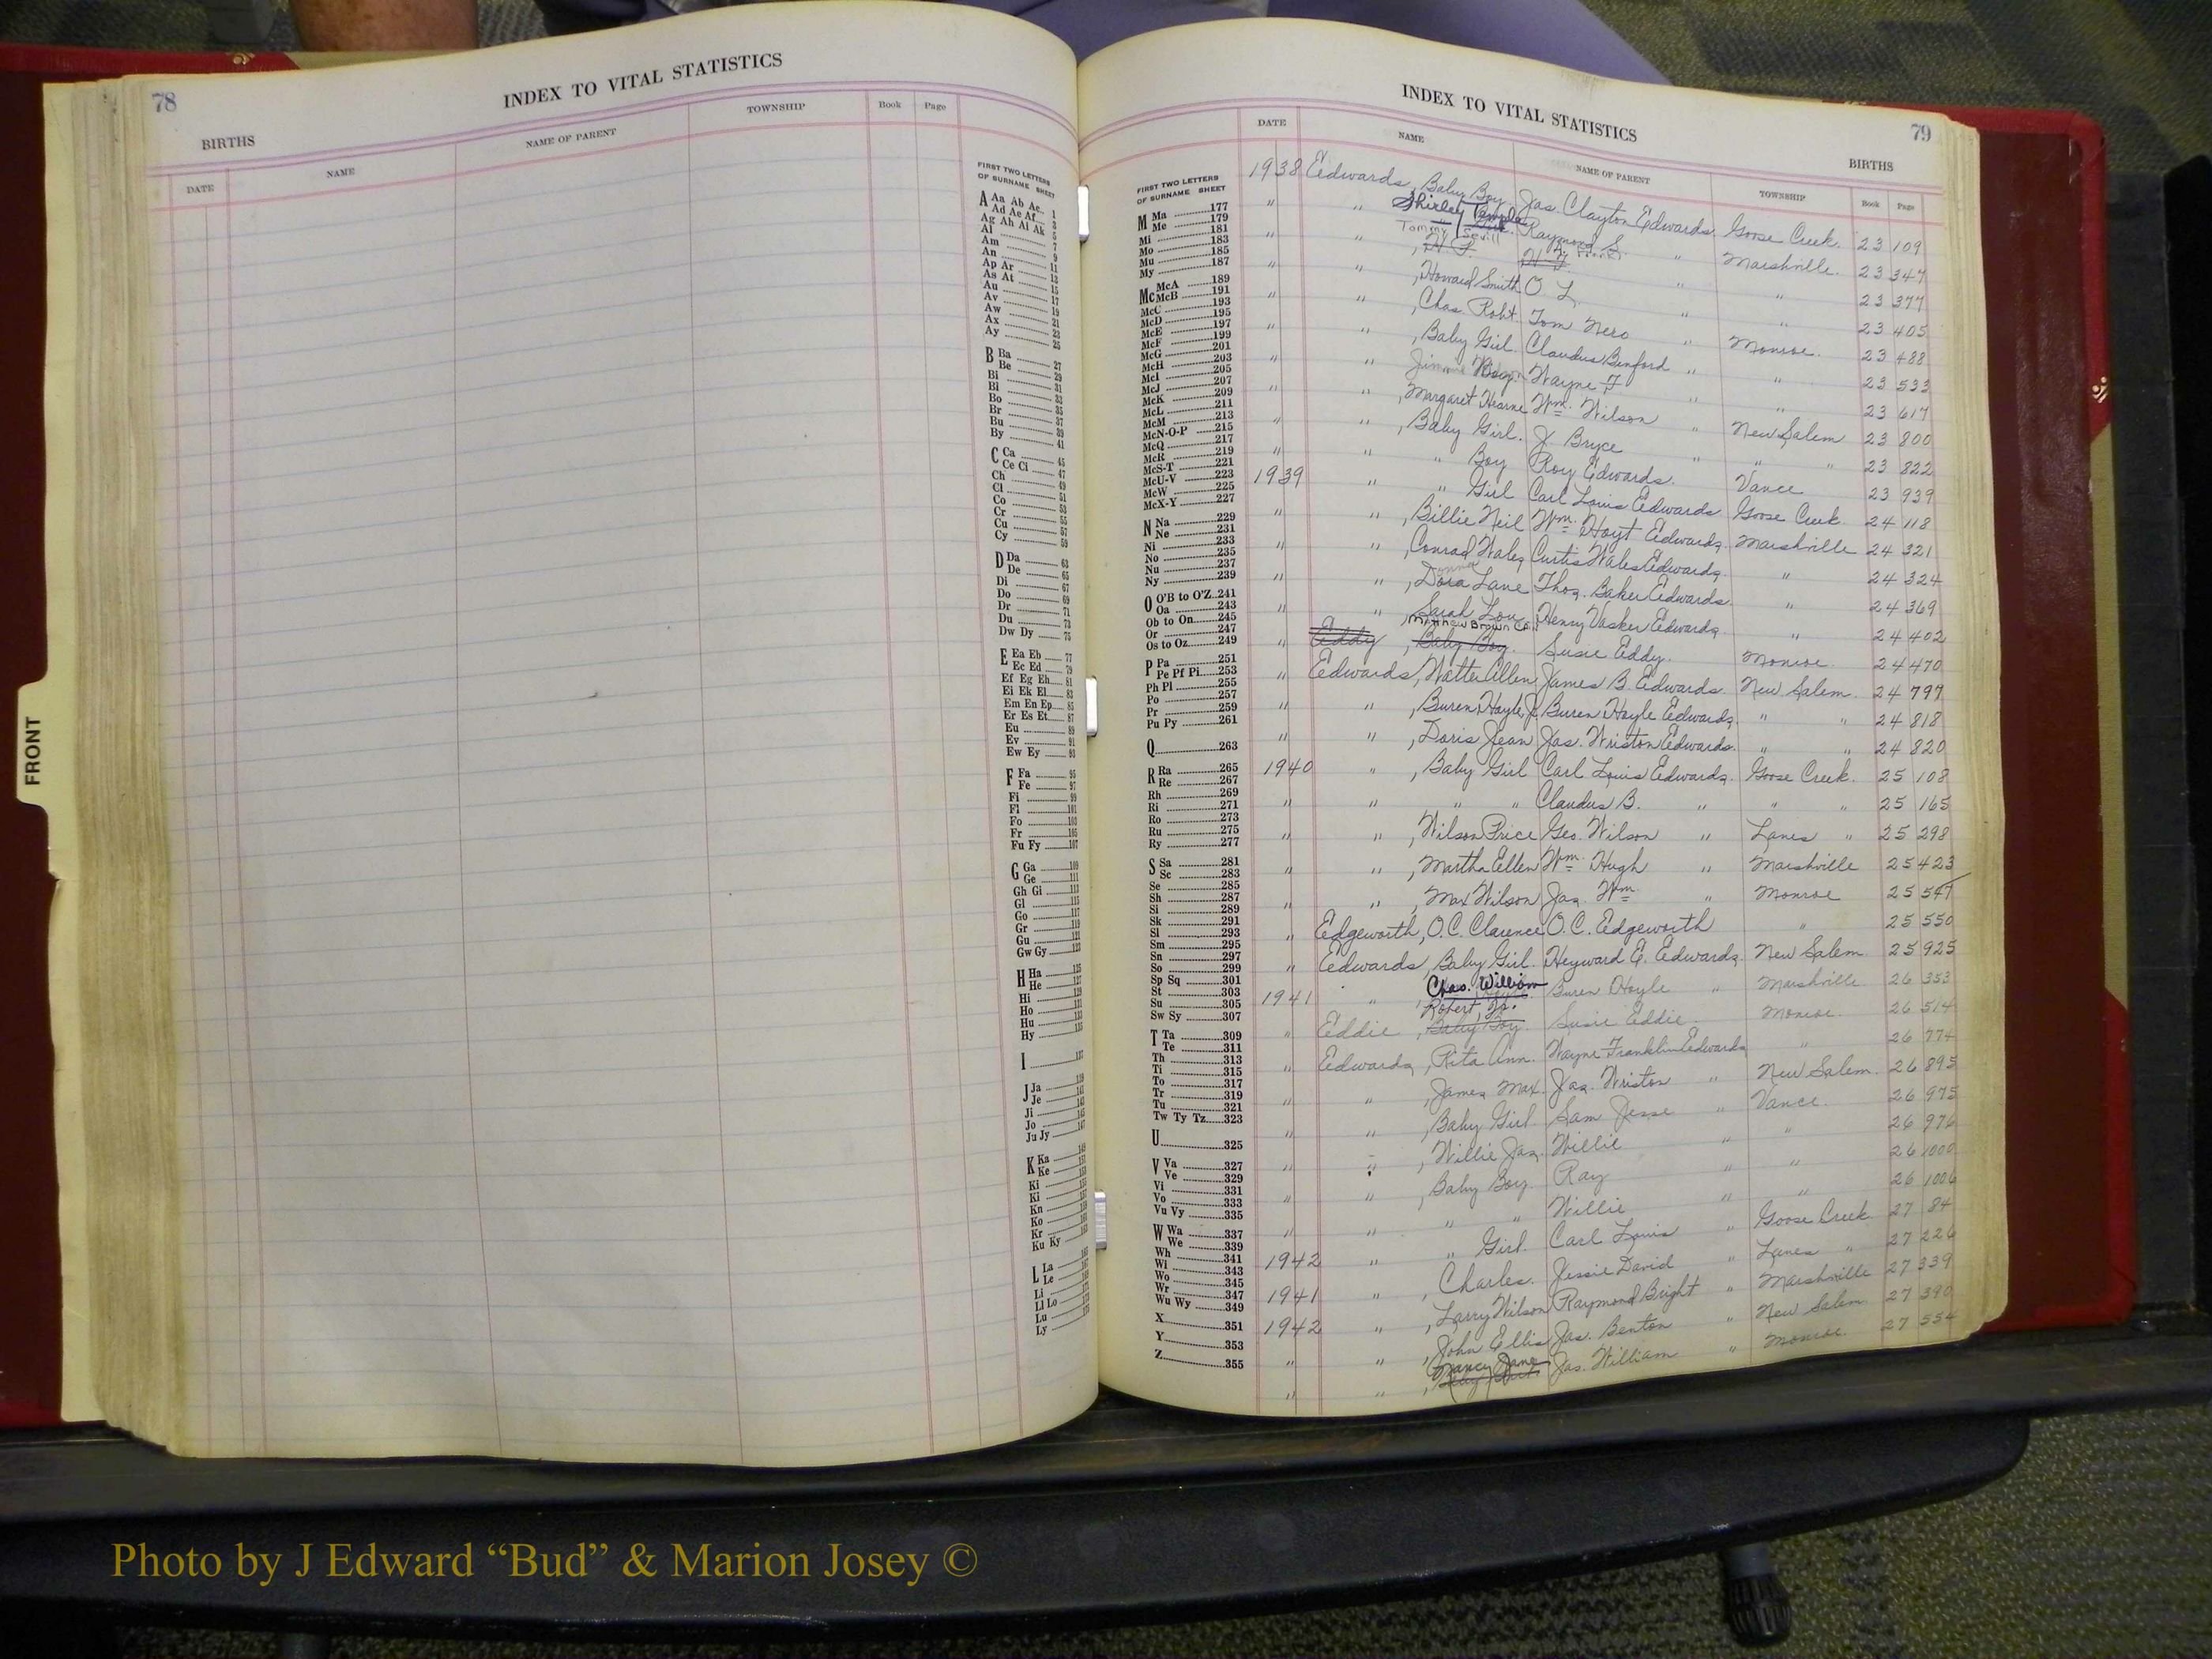 78
INDEX TO VITAL STATISTICS
BIRTHS
DATE NAME NAME OF PARENT TOWNSHIP Book Page
FIRST TWO LETTERS
OF SURNAME SHEET
A Aa Ab Ac 1
Ad Ae Af 3
Ag Ah Ai Ak 5
Al 7
Am 9
Ap Ar 11
As At 13
Au 15
Av 17
Aw 19
Ax 21
Ay
B Ba 27
Be 29
Bi 31
Bo
Br
Bu
By
C Ca 45
Ce Ci 47
Ch 49
Cl 51
Co 53
Cr 55
Cu 57
Cy 59
D Da 63
De 65
Di 67
Do 69
Dr 71
Du 73
Dw Dy 75
E Ea Eb 77
Ec Ed 79
Ef Eg Eh 81
Ei Ek El 83
Em En Ep 85
Er Es Et 87
Eu 89
Ev 91
Ew Ey 93
F Fa 95
Fe 97
Fi 99
Fl 101
Fo 103
Fr 105
Fu Fy 107
G Ga 109
Ge 111
Gh Gi 113
Gl 115
Go 117
Gr 119
Gu 121
Gw Gy 123
H Ha 125
He 127
Hi
Ho
Hu
Hy
I 137
J Ja
Je
Ji
Jo
Ju Jy
K Ka
Ke
Ki
Kn
Ko
Kr
Ku Ky
L La
Le
Li
Ll Lo
Lu
Ly
FRONT
INDEX TO VITAL STATISTICS
79
BIRTHS
DATE NAME NAME OF PARENT TOWNSHIP Book Page
FIRST TWO LETTERS
OF SURNAME SHEET
M Ma 177
Me 179
Mi 181
Mo 183
Mu 185
My 187
Mc McA 189
McB 191
McC 193
McD 195
McE 197
McF 199
McG 201
McH 203
McI 205
McJ 207
McK 209
McL 211
McM 213
McN-O-P 215
McQ 217
McR 219
McS-T 221
McU-V 223
McW 225
McX-Y 227
N Na 229
Ne 231
Ni 233
No 235
Nu 237
Ny 239
O O'B to O'Z 241
Oa 243
Ob to On 245
Or 247
Os to Oz 249
P Pa 251
Pe Pf Pi 253
Ph Pl 255
Po 257
Pr 259
Pu Py 261
Q 263
R Ra 265
Re 267
Rh 269
Ri 271
Ro 273
Ru 275
Ry 277
S Sa 281
Sc 283
Se 285
Sh 287
Si 289
Sk 291
Sl 293
Sm 295
Sn 297
So 299
Sp Sq 301
St 303
Su 305
Sw Sy 307
T Ta 309
Te 311
Th 313
Ti 315
To 317
Tr 319
Tu 321
Tw Ty Tz 323
U 325
V Va 327
Ve 329
Vi 331
Vo 333
Vu Vy 335
W Wa 337
We 339
Wh 341
Wi 343
Wo 345
Wr 347
Wu Wy 349
X 351
Y 353
Z 355
1938 Edwards, Baby Boy Jas. Clayton Edwards Goose Creek 23 109
" " Shirley Temple Raymond S. " Marshville 23 347
" " Tommy H. F. " " 23 377
" " , Howard Smith O. L. " " 23 405
" " , Chas. Robt. Tom Nero " Monroe 23 488
" " , Baby Girl Claudus Binford " " 23 533
" " Boy Wayne F " " 23 617
" " , Margaret Hearne Wm. Wilson " New Salem 23 800
" " , Baby Girl J Bryce " " " 23 822
" " " Boy Roy Edwards Vance 23 939
1939 " " Girl Carl Louis Edwards Goose Creek 24 118
" " , Billie Neil Wm. Hoyt Edwards Marshville 24 321
" " , Conrad Wales Curtis Wales Edwards " 24 324
" " , Dora Lane Thos. Baker Edwards " 24 369
" " , Sarah Lou Henry Vasker Edwards " 24 402
" Eddy , Matthew Brown Baby Boy Susie Eddy Monroe 24 470
" Edwards, Walter Allen James B. Edwards New Salem 24 797
" " , Buren Hoyle Jr Buren Hoyle Edwards " " 24 818
" " , Doris Jean Jas. Wriston Edwards " " 24 820
1940 " , Baby Girl Carl Louis Edwards Goose Creek 25 108
" " " " Claudus B. " " " 25 165
" " , Wilson Price Geo. Wilson " Lanes " 25 298
" " , Martha Ellen Wm. Hugh " Marshville 25 423
" " , Max Wilson Jas. Wm " Monroe 25 547
" Edgeworth, O.C. Clarence O.C. Edgeworth " 25 550
" Edwards, Baby Girl Heyward E. Edwards New Salem 25 925
1941 " Chas. William Buren Hoyle " Marshville 26 353
" Eddie , Robert, Jr. Baby Boy Susie Eddie Monroe 26 514
" Edwards , Rita Ann Wayne Franklin Edwards " 26 774
" " , James Max Jas. Wriston " New Salem 26 895
" " , Baby Girl Sam Jesse " Vance 26 975
" " , Willie Jas. Willie " " 26 976
" " , Baby Boy Ray " " 26 1000
" " " " Willie " " 26 1006
1942 " " Girl Carl Louis " Goose Creek 27 84
1941 " , Charles Jessie David " Lanes " 27 226
1942 " , Larry Wilson Raymond Bright " Marshville 27 339
" " , John Ellis Jas. Benton " New Salem 27 390
" " , Nancy Jane Jas. William " Monroe 27 554
Photo by J Edward “Bud” & Marion Josey ©